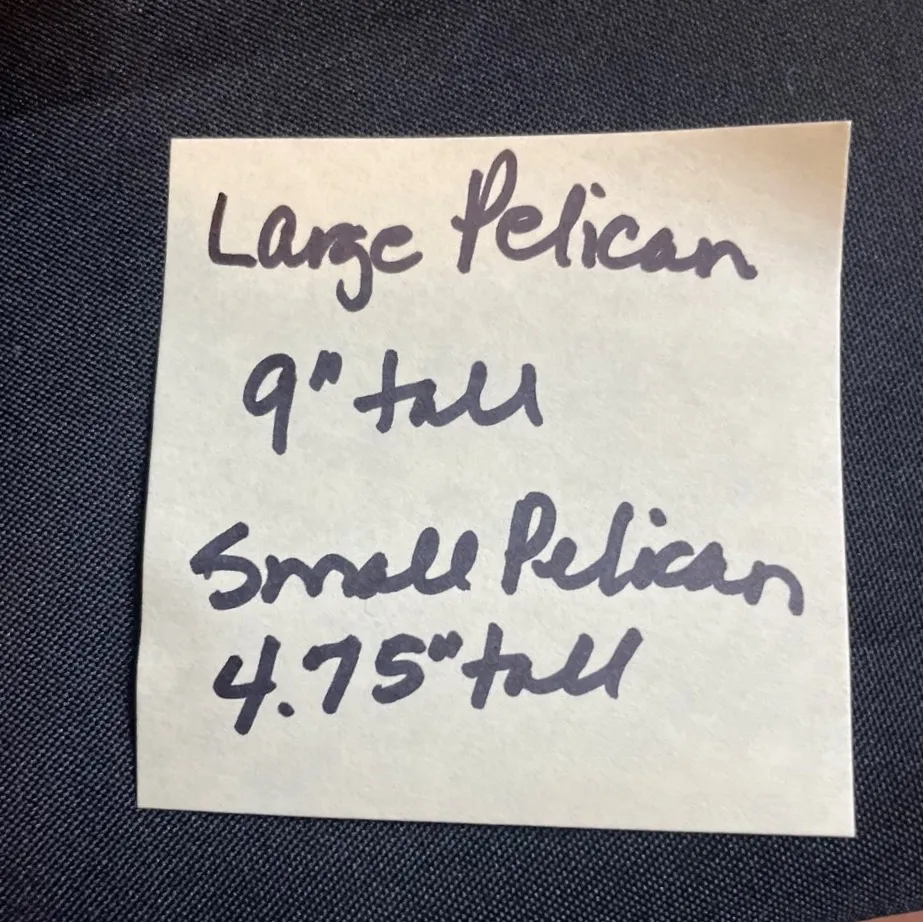 Large Pelican
9" tall
Small Pelican
4.75" tall